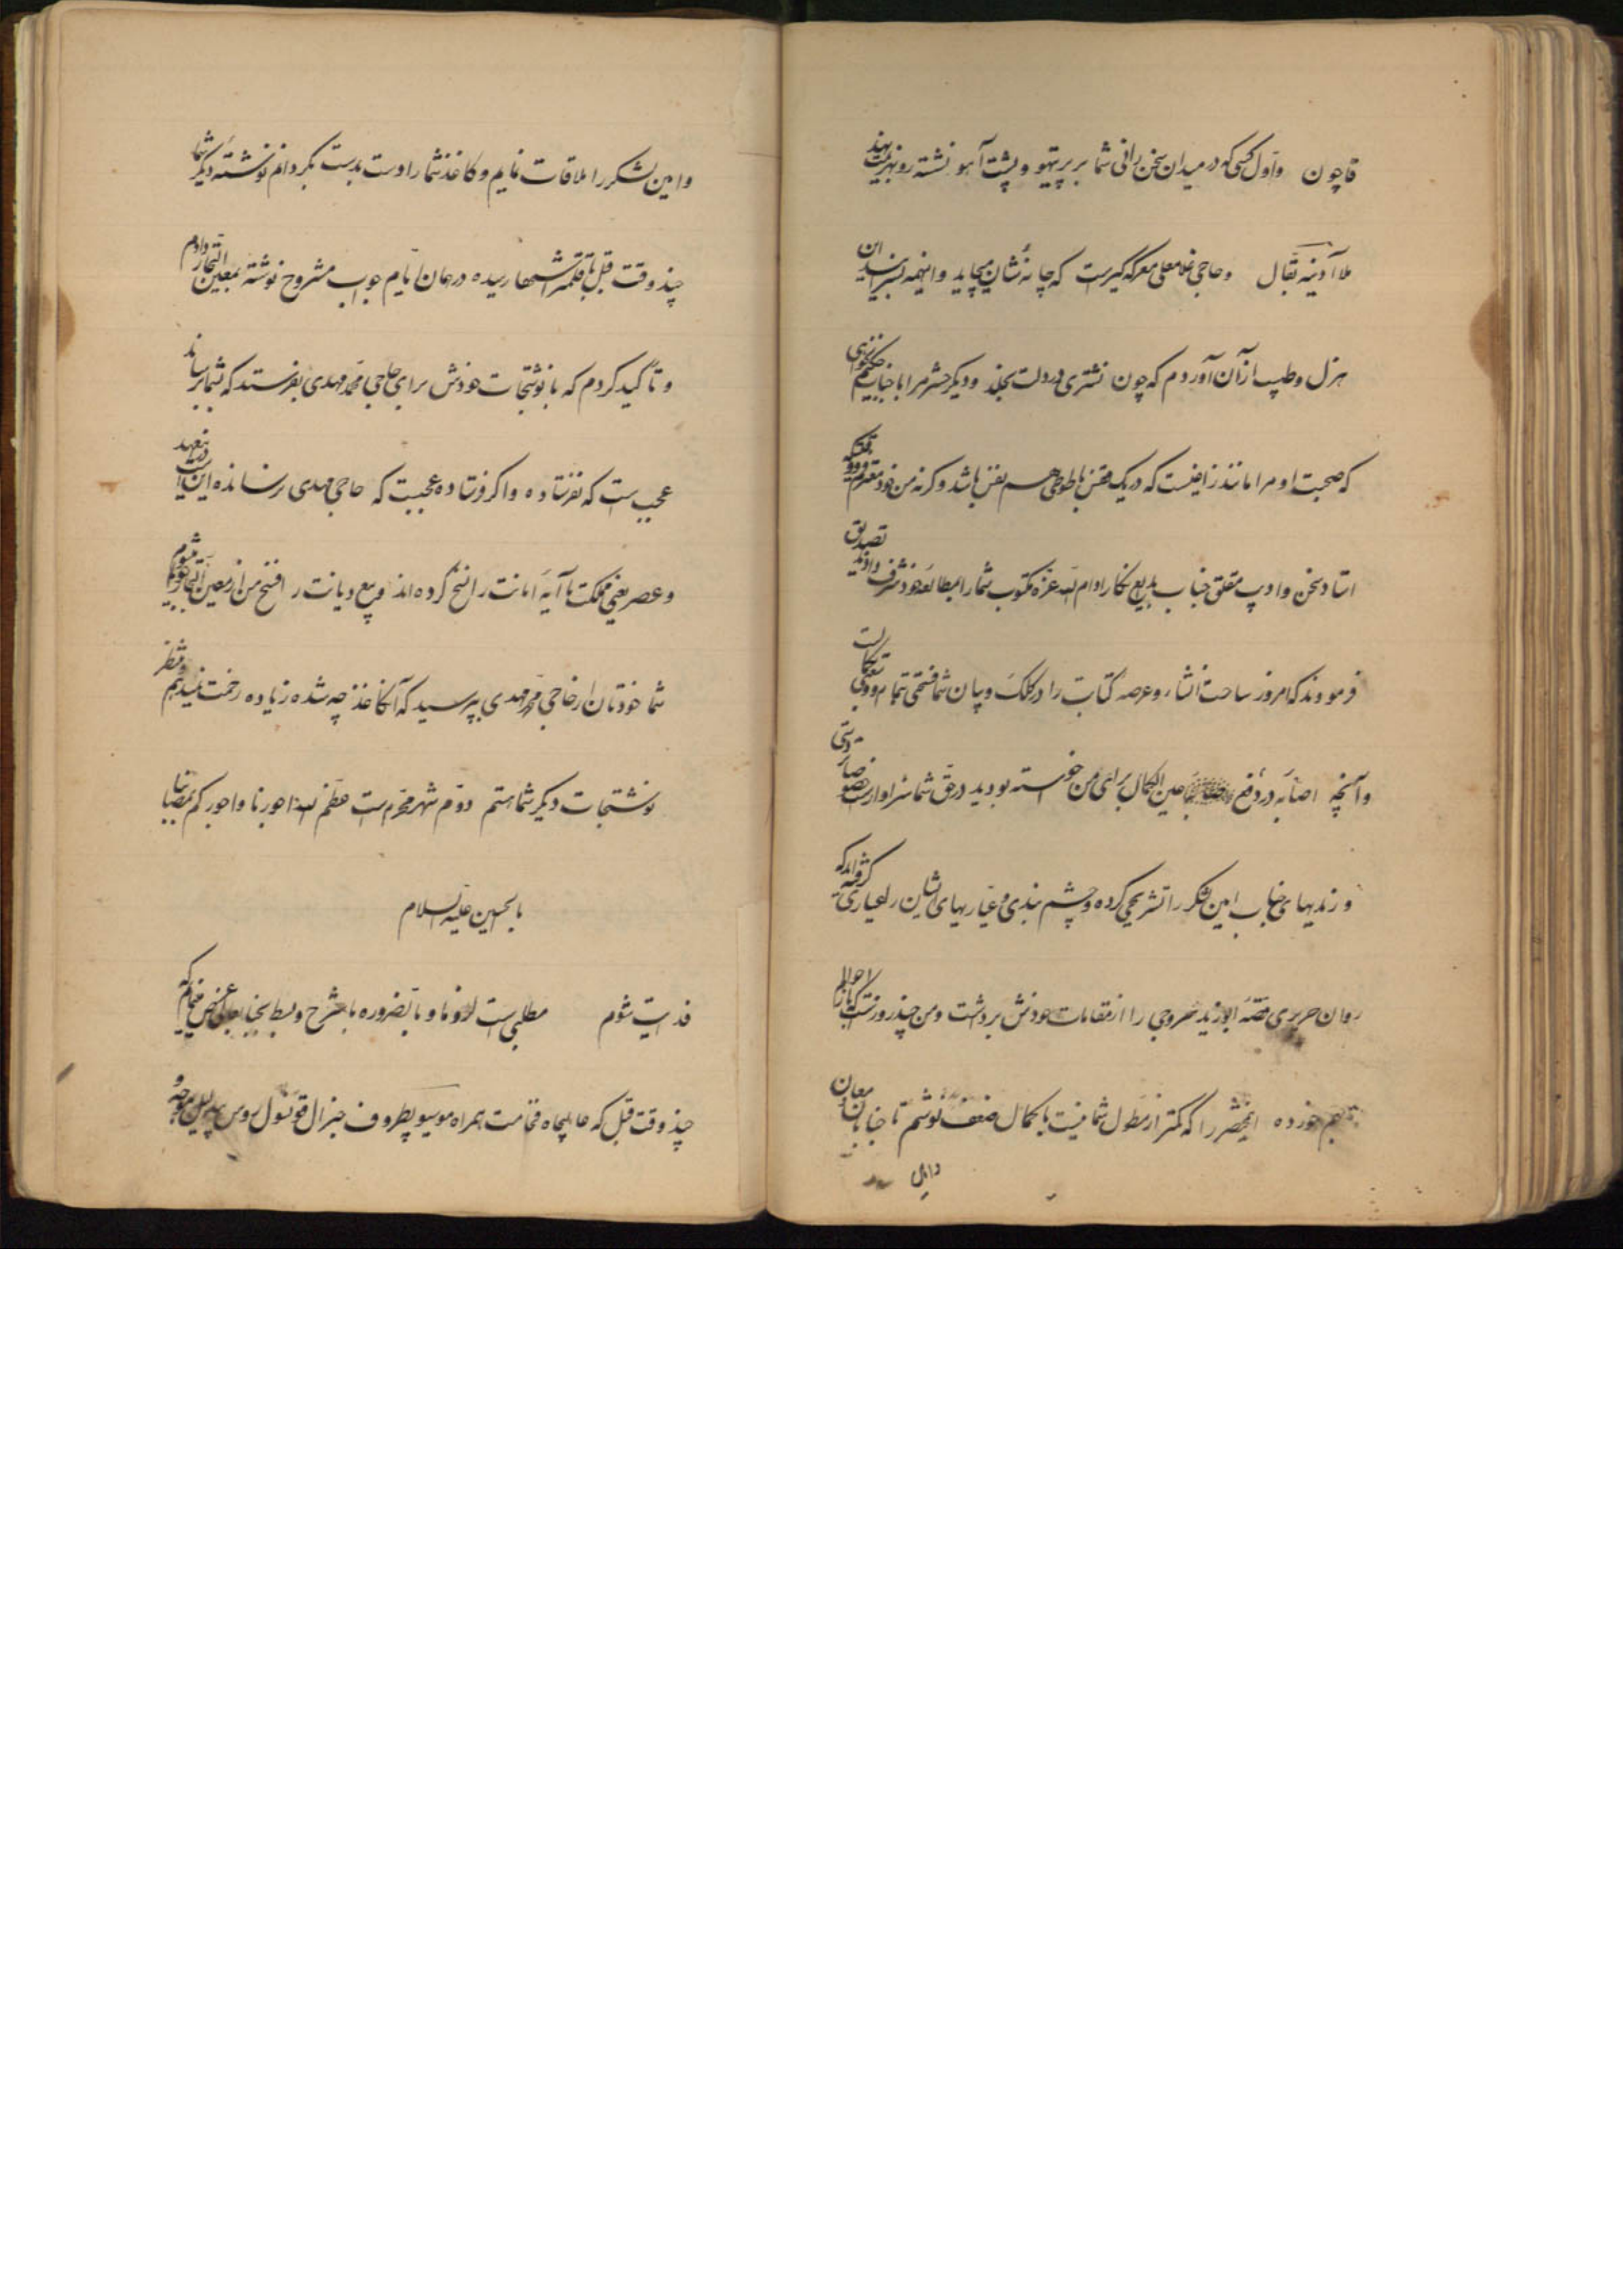 قاچون واول کسی که در میدان سخن رانی شما بر پر تیهو و پشت آهو نشسته رو بهزیمت نهد
ملا آدینه بقال و حاجی غلامعلی معرکه گیرست که چانه شان میچاید و اینهمه
هزل و طیب از آن آوردم که چون نشتری در دلت بخلد و دیگر حشر مرا با جناب حکیم
که صحبت او مرا مانند زاغیست که در یک قفس با طوطی هم نفس باشد وگرنه من خود معترفم
استاد سخن و ادیب مفلق جناب بدیع نگار ادام الله عزه مکتوب شما را بمطالعه خود شرف دادند تصدیق
فرمودند که امروز ساحت انشاء و عرصه کتابت را در کلک و بیان شما فسحتی تمام
وآنچه اصابه در دفع عین الکمال برای من خواسته بودید در حق شما سزاوارست
و رندیهای جناب امین لشکر را تشریحی کرده و چشم بندی و عیاریهای ایشان را
روان حریری قصه ابوزید سروجی را از مقامات خودش برداشت و من چند روزست که احوالم
بهم خورده اینمختصر را که کمتر از مطول شما نیست با کمال ضعف نوشتم تا جنابان معاون
وامین لشکر را ملاقات نمایم و کاغذ شما را دست بدست بگردانم نوشته دیگر شما
چند وقت قبل رسیده در همان ایام جواب مشروح نوشته بمعین التجار دادم
و تأکید کردم که با نوشتجات خودش برای حاجی محمد مهدی بفرستد که بشما برساند
عجیب ست که نفرستاده و اگر فرستاده عجیبست که حاجی مهدی نرسانده این
و عصر یعنی مملکت ما آیه امانت را نسخ کرده اند و بیع دیانت را فسخ من از معین التجار
شما خودتان از حاجی محمد مهدی بپرسید که آن کاغذ چه شده زیاده زحمت نمیدهم و منتظر
نوشتجات دیگر شما هستم دوم شهر محرم ست عظم الله اجورنا و اجورکم بمصابنا
بالحسین علیه السلام
فدایت شوم مطلبی ست لازم و بالضروره با شرح و بسط بجنابعالی عرض مینمایم که
چند وقت قبل که عالیجاه فخامت همراه موسیو پطروف جنرال قونسول روس